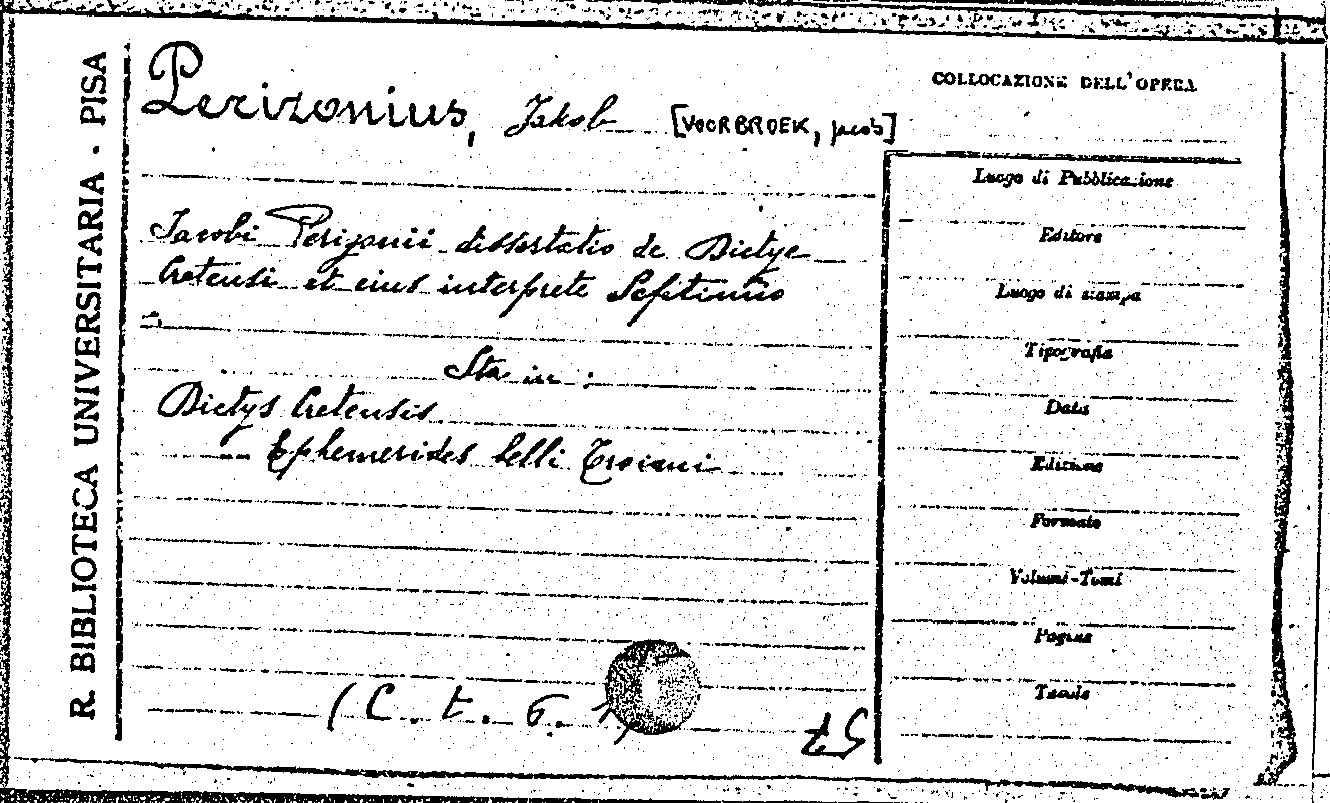 R. BIBLIOTECA UNIVERSITARIA · PISA
Perizonius, Jakob [VOORBROEK, Jacob]
Jacobi Perizonii dissertatio de Dictye
Cretensi et eius interprete Septimio
Sta in :
Dictys Cretensis
— Ephemerides belli Troiani
(C. t. 6.
57
COLLOCAZIONE DELL'OPERA
Luogo di Pubblicazione
Editore
Luogo di stampa
Tipografia
Data
Edizione
Formato
Volumi-Tomi
Pagine
Tavole